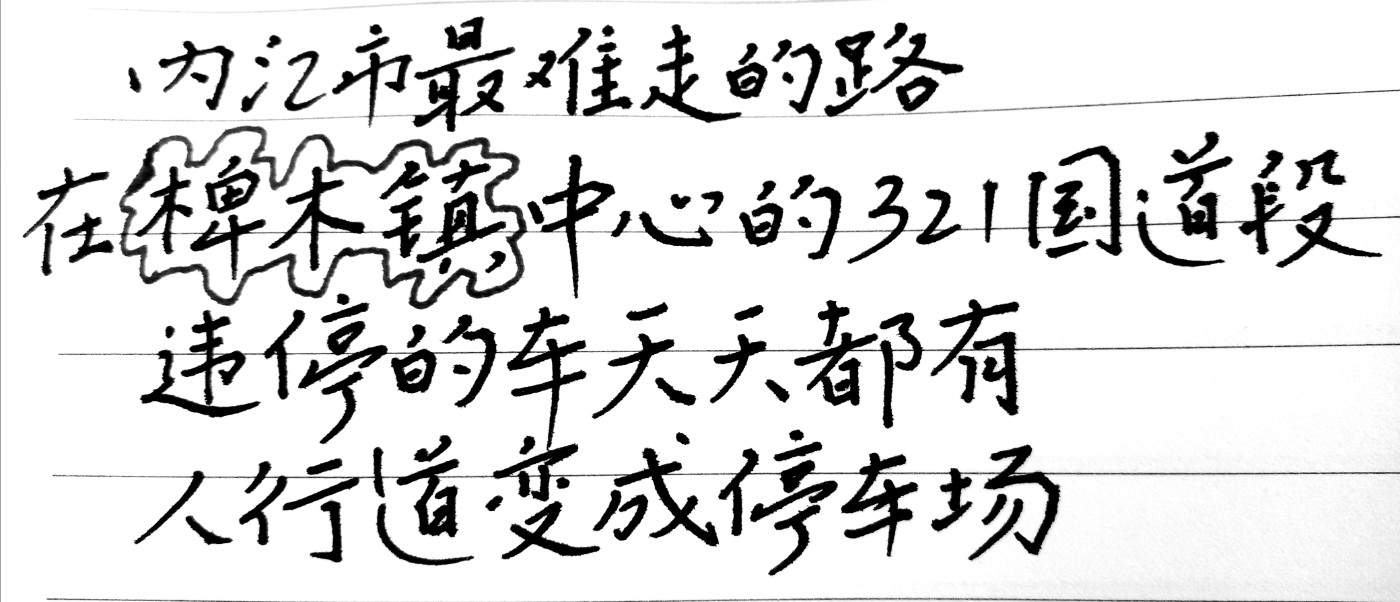 内江市最难走的路
在椑木镇中心的321国道段
违停的车天天都有
人行道变成停车场